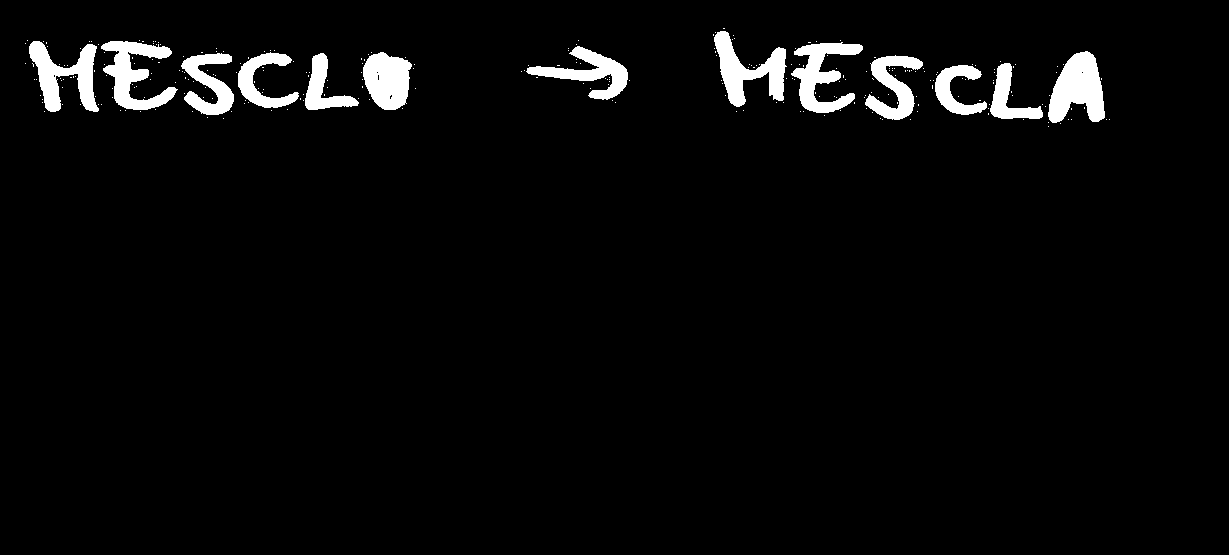 MESCLO → MESCLA